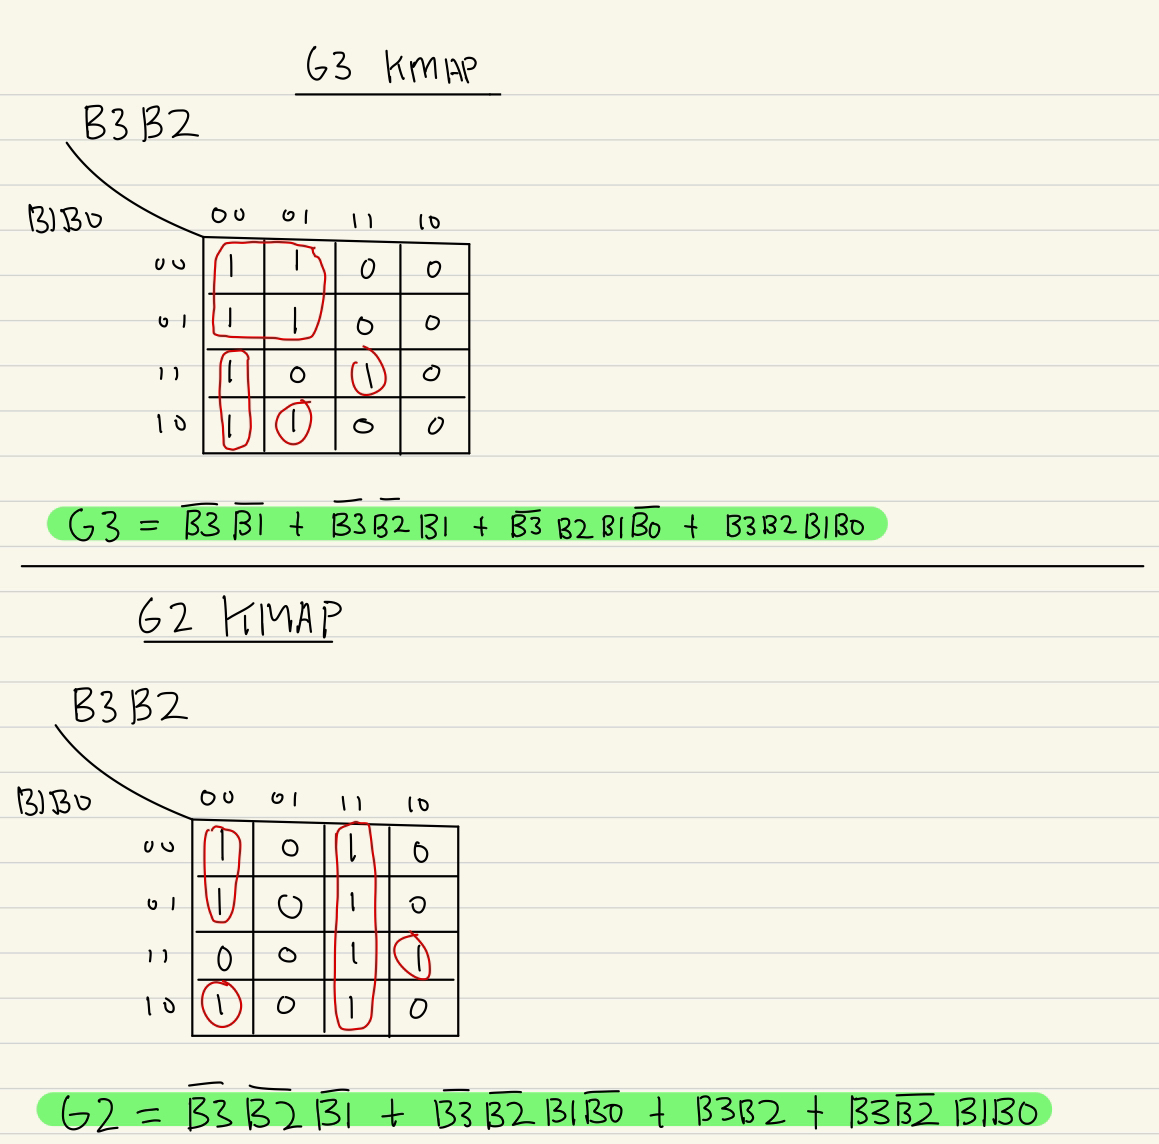 G3 KMAP
B3B2
B1B0 00 01 11 10
00 1 1 0 0
01 1 1 0 0
11 1 0 1 0
10 1 1 0 0
G3 = B̅3̅ B̅1̅ + B̅3̅ B̅2̅ B1 + B̅3̅ B2 B1 B̅0̅ + B3B2B1B0
G2 KMAP
B3B2
B1B0 00 01 11 10
00 1 0 1 0
01 1 0 1 0
11 0 0 1 1
10 1 0 1 0
G2 = B̅3̅ B̅2̅ B̅1̅ + B̅3̅ B̅2̅ B1 B̅0̅ + B3B2 + B3 B̅2̅ B1B0